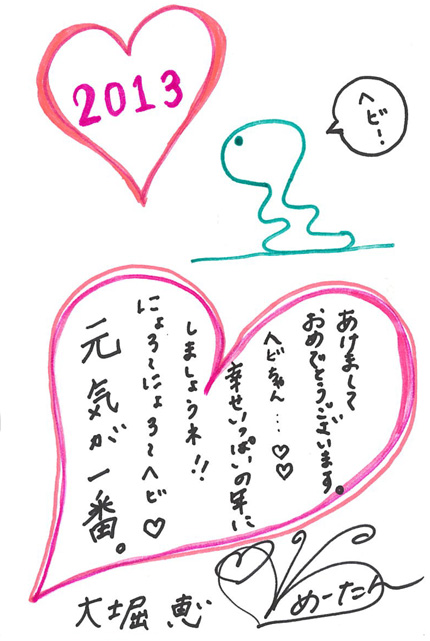 2013
ヘビー!
あけまして
おめでとうございます。
ヘビちゃん…♡♡
幸せいっぱいの年に
しましょうネ!!
にょろ〜にょろ〜ヘビ♡
元気が一番。
大堀恵
めーたん